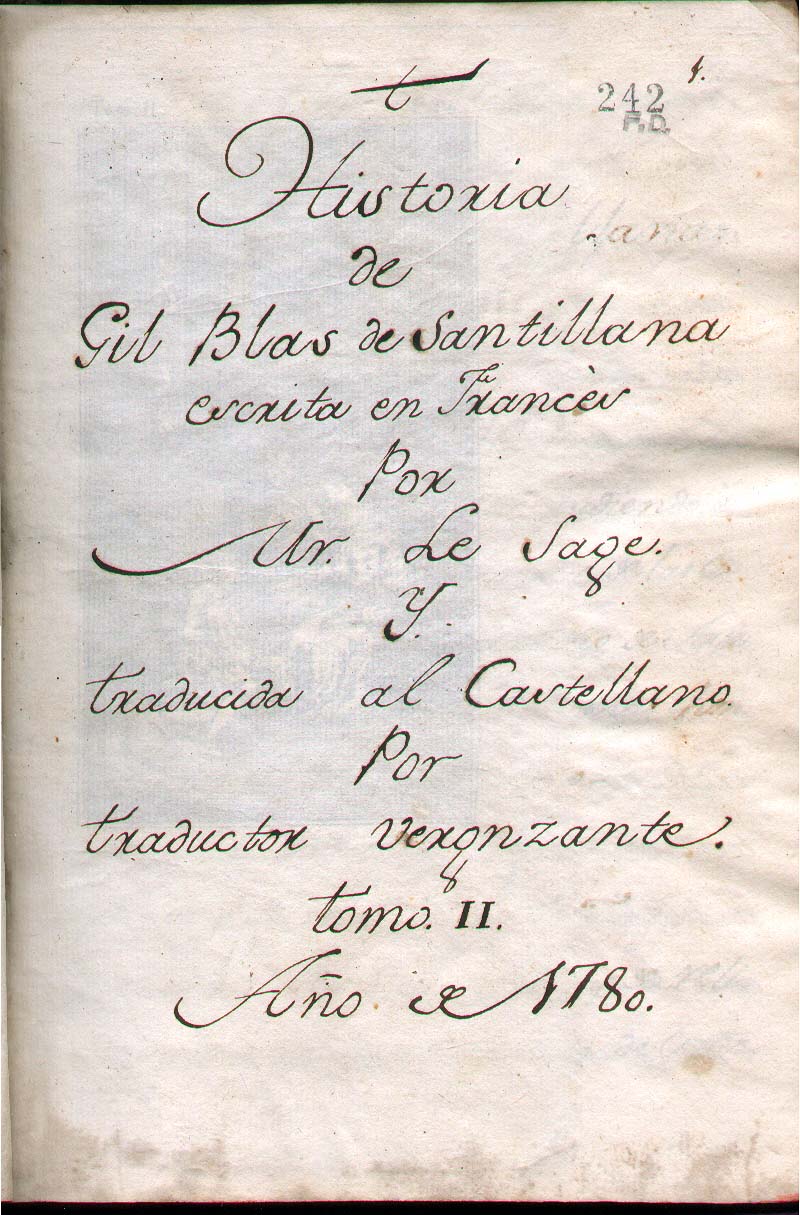 242
F.D.
1.
Historia
de
Gil Blas de Santillana
escrita en Francès
Por
Mr. Le Sage.
Y.
traducida al Castellano.
Por
traductor vergnzante.
tomo. II.
Año de 1780.